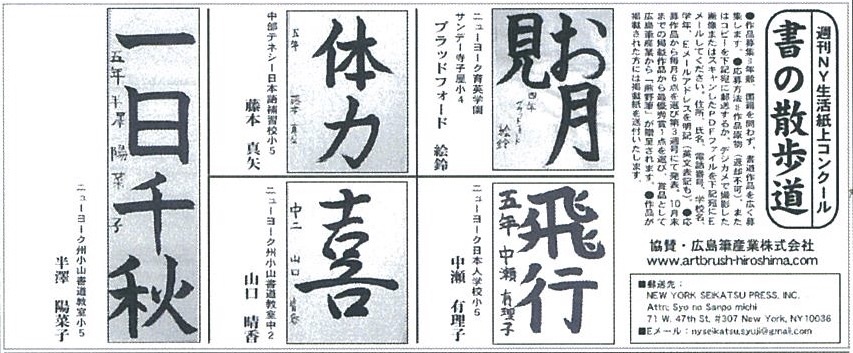 週刊NY生活紙上コンクール
書の散歩道
●作品募集=年齢、国籍を問わず、書道作品を広く募
集します。●応募方法=作品原物(返却不可)、また
はコピーを下記宛に郵送するか、デジカメで撮影した
画像またはスキャンしたPDFファイルを下記宛にE
メールしてください。住所、氏名、電話番号、学校名、
学年、Eメールアドレスを明記(英文表記も)。●応
募作品から毎月6点を選び第3週号にて発表。10月末
までの掲載作品から最優秀賞1点を選び、賞品として
広島筆産業から「熊野筆」が贈呈されます。●作品が
掲載された方には掲載紙を送付いたします。
協賛・広島筆産業株式会社
www.artbrush-hiroshima.com
■郵送先:
NEW YORK SEIKATSU PRESS, INC.
Attn: Syo no Sanpo michi
71 W. 47th St. #307 New York, NY10036
■Eメール:nyseikatsu.syuji@gmail.com
お月
見
四年
絵鈴
ニューヨーク育英学園
サンデー寺子屋小4
ブラッドフォード 絵鈴
飛行
五年 中瀬 有理子
ニューヨーク日本人学校小5
中瀬 有理子
体力
五年 藤本 真矢
中部テネシー日本語補習校小5
藤本 真矢
喜
中二 山口 晴香
ニューヨーク州小山書道教室中2
山口 晴香
一日千秋
五年 半澤 陽菜子
ニューヨーク州小山書道教室小5
半澤 陽菜子